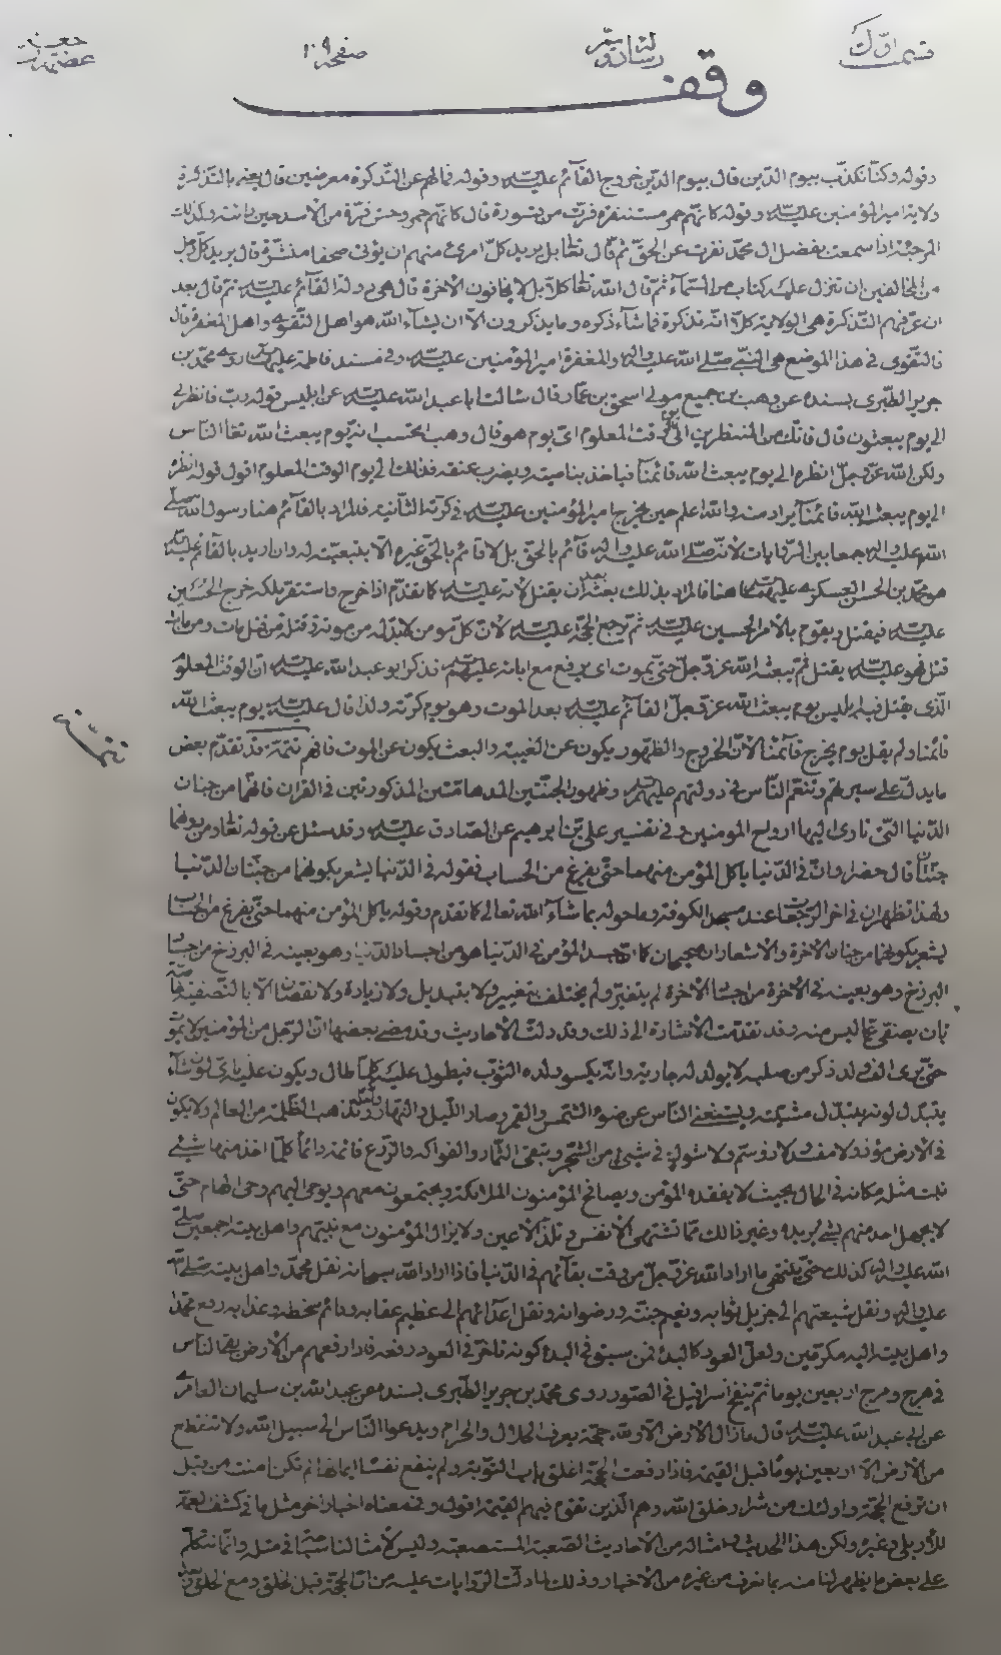 قسمت اوّل
رسالهٔ
صفحه ١٠٩
وقف
وقوله وكنّا نكذّب بيوم الدّين قال بيوم الدّين خروج القآئم عليه السلام وقوله فما لهم عن التّذكرة معرضين قال يعني بالتّذكرة
ولاية امير المؤمنين عليه السلام وقوله كانّهم حمر مستنفرة فرّت من قسورة قال كانّهم حمر وحش فرّت من الأسد حين رأته وكذلك
المرجئة اذا سمعت بفضل ال محمّد نفرت عن الحقّ ثم قال تعالى بل يريد كلّ امرئ منهم ان يؤتى صحفا منشّرة قال يريد كلّ رجل
من المخالفين ان تنزل عليه كتاب من السّمآء ثم قال الله تعالى كلّا بل لا يخافون الأخرة قال هي دولة القآئم عليه السلام ثم قال بعد
ان عرّفهم التّذكرة هي الولاية كلّا انّه تذكرة فمن شآء ذكره وما يذكرون الّا ان يشآء الله هو اهل التّقوى واهل المغفرة قال
فالتّقوى في هذا الموضع هي النّبيّ صلّى الله عليه واله والمغفرة امير المؤمنين عليه السلام وفي مسند فاطمة عليها السلام روى محمّد بن
جرير الطّبرى بسنده عن وهب بن جميع مولى اسحق بن عمّار قال سالت ابا عبد الله عليه السلام عن ابليس قوله ربّ فانظرني
الى يوم يبعثون قال فانّك من المنظرين الى يوم الوقت المعلوم اىّ يوم هو قال وهب اتحسب انّه يوم يبعث الله تعالى النّاس
ولكن الله عزّ وجلّ انظره الى يوم يبعث الله قائمنا فياخذ بناصيته ويضرب عنقه فذلك الى يوم الوقت المعلوم اقول قوله انظره
الى يوم يبعث الله قائمنا يراد منه والله اعلم حين يخرج امير المؤمنين عليه السلام في كرّته الثّانية فالمراد بالقآئم هنا رسول الله صلّى
الله عليه واله جمعا بين الرّوايات لأنّه صلّى الله عليه واله قآئم بالحقّ بل لا قآئم بالحقّ غيره الّا بتبعيّته له وان اريد بالقآئم عليه السلام
هو محمّد بن الحسن العسكرى عليهما السلام هنا فالمراد بذلك بعثه بعد ان يقتل لأنّه عليه السلام كما تقدّم اذا خرج واستقرّ ملكه خرج الحسين
عليه السلام فيقتل ويقوم بالأمر الحسين عليه السلام ثم ترجع الحجّة عليه السلام لأنّ كلّ مومن لا بدّ له من موتة وقتلة من قتل مات ومن مات
قتل فهو عليه السلام يقتل ثمّ يبعثه الله عزّ وجلّ حتّى يموت اى يرفع مع ابائه عليهم السلام فذكر ابو عبد الله عليه السلام انّ الوقت المعلوم
الّذى يقتل فيه ابليس يوم يبعث الله عزّ وجلّ القآئم عليه السلام بعد الموت وهو يوم كرّته ولذا قال عليه السلام يوم يبعث الله
قائمنا ولم يقل يوم يخرج قآئمنا لأنّ الخروج والظّهور يكون عن الغيبة والبعث يكون عن الموت فافهم تتمّة قد تقدّم بعض
تتمّة
ما يدلّ على سيرتهم وتنعّم النّاس في دولتهم عليهم السلام وظهور الجنّتين المدهامّتين المذكورتين في القران فانّهما من جنان
الدّنيا الّتي تاوى اليها ارواح المومنين وفي تفسير على بن ابرهيم عن الصّادق عليه السلام وقد سئل عن قوله تعالى ومن دونهما
جنّتان قال خضراوان في الدّنيا ياكل المؤمن منهما حتّى يفرغ من الحساب فقوله في الدّنيا يشعر بكونهما من جنان الدّنيا
ولهذا تظهران في اخر الرّجعات عند مسجد الكوفة وما حوله بما شآء الله تعالى كما تقدم وقوله ياكل المؤمن منهما حتّى يفرغ من الحساب
يشعر بكونهما من جنان الأخرة والأشعاران صحيحان كما انّ جسد المؤمن في الدّنيا هو من اجساد الدّنيا وهو بعينه في البرزخ من اجساد
البرزخ وهو بعينه في الأخرة من اجساد الأخرة لم يتغيّر ولم يختلف بتغيير ولا بتبديل ولا زيادة ولا نقصان الّا بالتّصفية خاصّة
بان يصفّى عمّا ليس منه وقد تقدّمت الأشارة الى ذلك وقد دلّت الأحاديث وقد مضى بعضها انّ الرّجل من المؤمنين لا يموت
حتّى يرى الف ولد ذكر من صلبه لا يولد له جارية وانّه يكسو ولده الثّوب فيطول عليه كلّما طال ويكون عليه باىّ لون شآء
يتبدّل لونه بتبدّل مشيّته ويستغنى النّاس عن ضوء الشّمس والقمر وصار اللّيل والنّهار واحدا وتذهب الظّلمة من العالم ولا يكون
في الأرض مؤذ ولا مفسد ولا ذو سمّ ولا شوك في شئ من الشّجر وتبقى الثّمار والفواكه والزّرع قائمة دائماً كلّما اخذ منها شيئ
نبت مثله مكانه في الحال بحيث لا يفقده المؤمن ويصافح المؤمنون الملائكة ويجتمعون معهم ويوحى اليهم وحى الهام حتّى
لا يجهل احد منهم شئ يريده وغير ذالك ممّا تشتهى الأنفس وتلذّ الأعين ولا يزال المؤمنون مع نبيّهم واهل بيته اجمعين صلّى
الله عليه واله كذلك حتّى ينتهى ما اراد الله عزّ وجلّ من وقت بقآئهم في الدّنيا فاذا اراد الله سبحانه نقل محمّد واهل بيته صلّى الله
عليه واله ونقل شيعتهم الى جزيل ثوابه ونعيم جنّته ورضوانه ونقل اعدآئهم الى عظيم عقابه ودائم سخطه وعذابه رفع محمّدا
واهل بيته اليه مكرّمين ولعلّ العود كالبدء فمن سبق في البدء كونه تاخّر في العود رفعه فاذا رفعهم من الأرض بقى النّاس
في هرج ومرج اربعين يوما ثمّ ينفخ اسرافيل في الصّور روى محمّد بن جرير الطّبرى بسنده عن عبد الله بن سليمان العامرى
عن ابى عبد الله عليه السلام قال ما زال الأرض الّا ولله حجّة يعرف الحلال والحرام ويدعوا النّاس الى سبيل الله ولا تنقطع
من الأرض الّا اربعين يوماً قبل القيمة فاذا رفعت الحجّة اغلق باب التّوبة ولم ينفع نفسًا ايمانها لم تكن امنت من قبل
ان ترفع الحجّة واولئك من شرار خلق الله وهم الّذين تقوم فيهم القيمة اقول وفي معناه اخبار اخر مثل ما في كشف الغمّة
للأربلى وغيره ولكن هذا الحديث وامثاله من الأحاديث الصّعبة المستصعبة وليس لأمثالنا سيّما في مثله وانّما نتكلّم
على بعض ما يظهر لنا منه بما نعرف من غيره من الأخبار وذلك لما دلّت الرّوايات عليه من انّ الحجّة قبل الخلق ومع الخلق وبعد